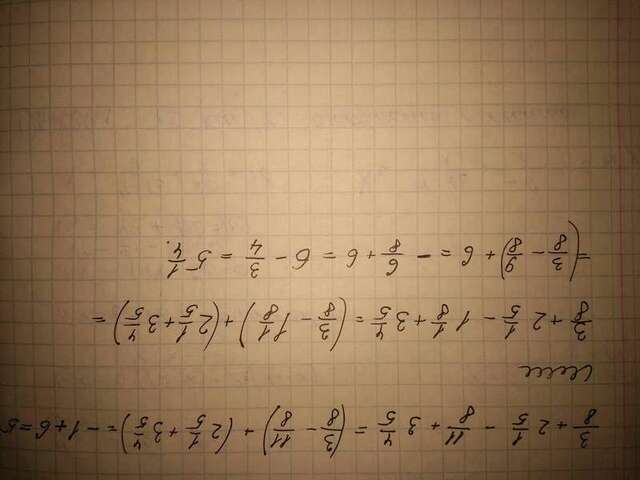 3/8 + 2 1/5 - 11/8 + 3 4/5 = (3/8 - 11/8) + (2 1/5 + 3 4/5) = -1+6=5
или
3/8 + 2 1/5 - 1 1/8 + 3 4/5 = (3/8 - 1 1/8) + (2 1/5 + 3 4/5) =
= (3/8 - 9/8) + 6 = - 6/8 + 6 = 6 - 3/4 = 5 1/4.